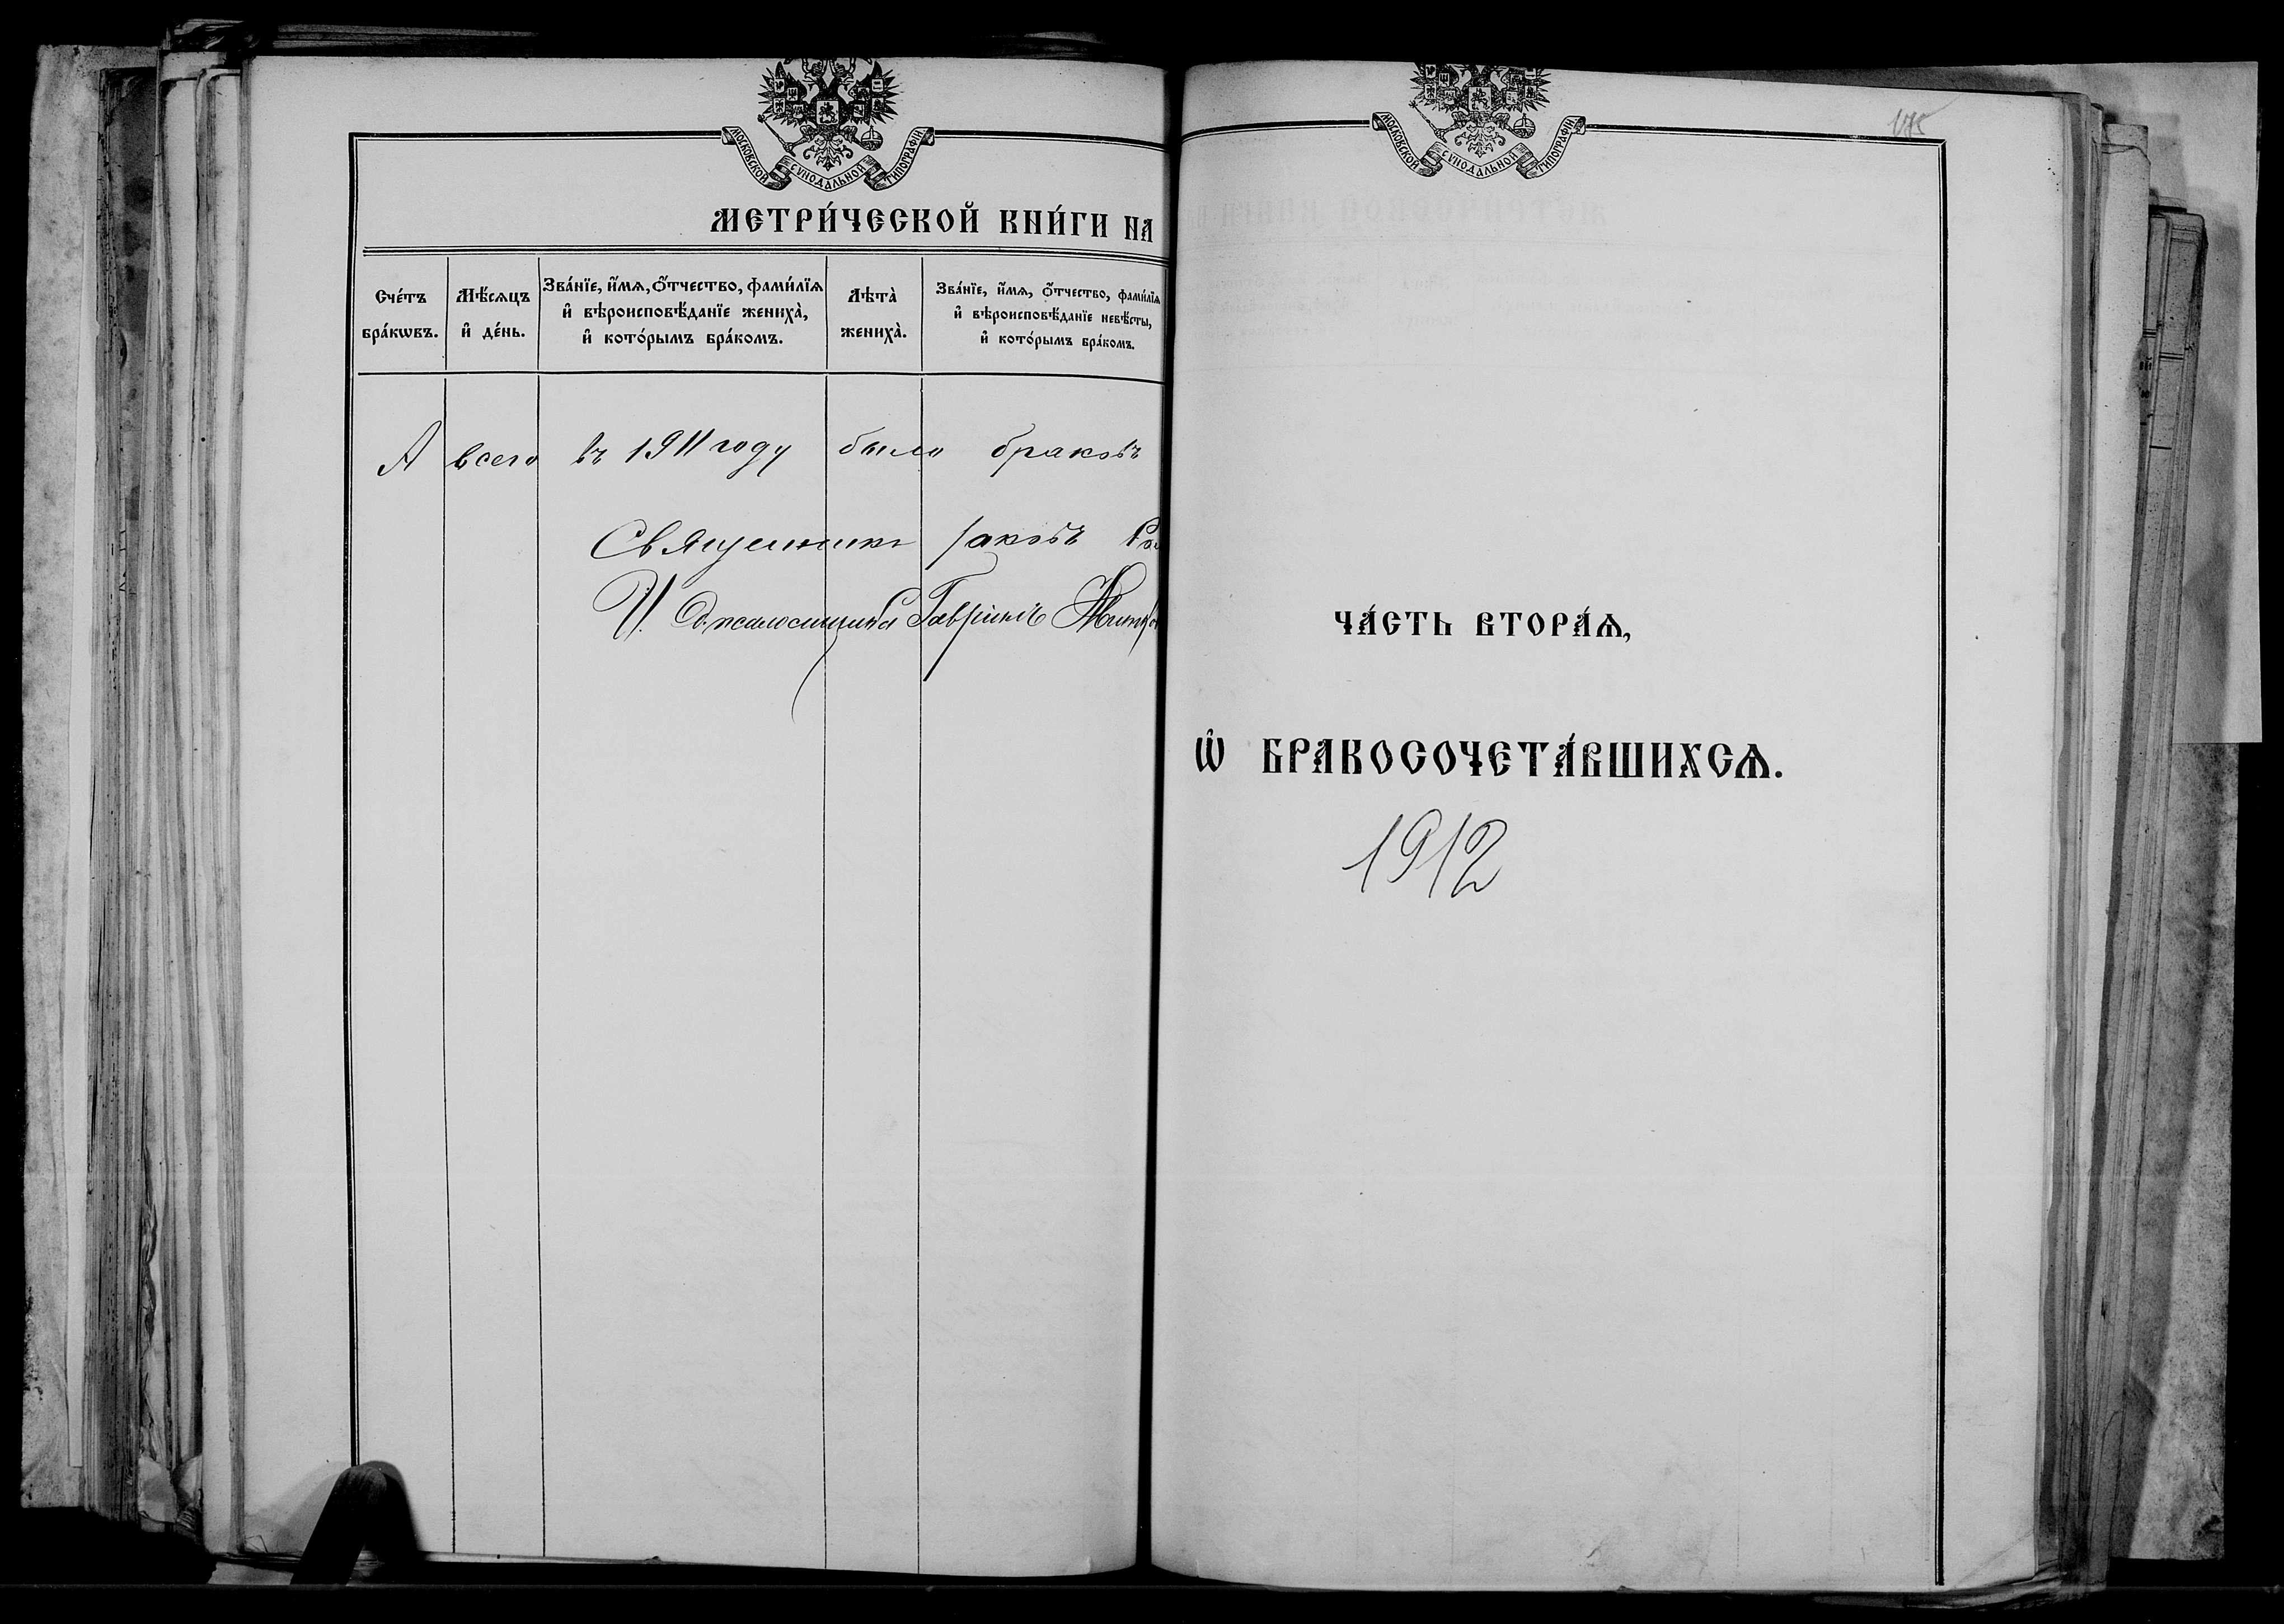 МОСКОВСКОЙ СѴНОДАЛЬНОЙ ТИПОГРАФІИ
МЕТРИ́ЧЕСКОЙ КНИ́ГИ НА
Сче́тъ бра́кѡвъ.
Мѣ́сѧцъ и҆ де́нь.
Зва́нїе, и҆́мѧ, ѻ҆́тчество, фами́лїѧ
и҆ вѣроисповѣ́данїе женихà,
и҆ кото́рымъ бра́комъ.
Лѣтà женихà.
Зва́нїе, и҆́мѧ, ѻ҆́тчество, фами́лїѧ
и҆ вѣроисповѣ́данїе невѣ́сты,
и҆ кото́рымъ бра́комъ.
А всего въ 1911 году было браковъ
Священникъ Іаковъ
И. д. псаломщика Гавріилъ
МОСКОВСКОЙ СѴНОДАЛЬНОЙ ТИПОГРАФІИ
175
ЧА́СТЬ ВТОРА́Ѧ,
Ѡ҆ БРАКОСОЧЕТА́ВШИХСѦ.
1912